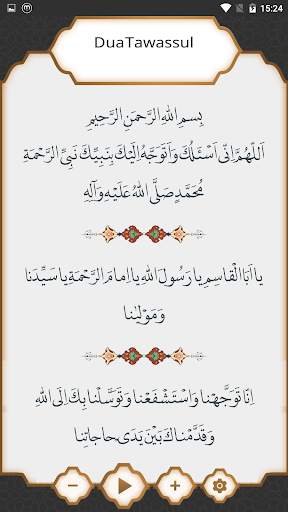 15:24
DuaTawassul
بِسمِ اللهِ الرَّحمَنِ الرَّحیمِ
اَللّهُمَّ اِنّی اَسْئَلُكَ وَ اَتَوَجَّهُ اِلَیْكَ بِنَبِیِّكَ نَبِیِّ الرَّحْمَةِ
مُحَمَّدٍ صَلَّی اللهُ عَلَیْهِ وَ آلِهِ
یا اَبَا الْقاسِمِ یا رَسُولَ اللهِ یا اِمامَ الرَّحْمَةِ یا سَیِّدَنا
وَ مَوْلینا
اِنّا تَوَجَّهْنا وَ اسْتَشْفَعْنا وَ تَوَسَّلْنا بِكَ اِلَی اللهِ
وَ قَدَّمْناكَ بَیْنَ یَدَی حاجاتِنا